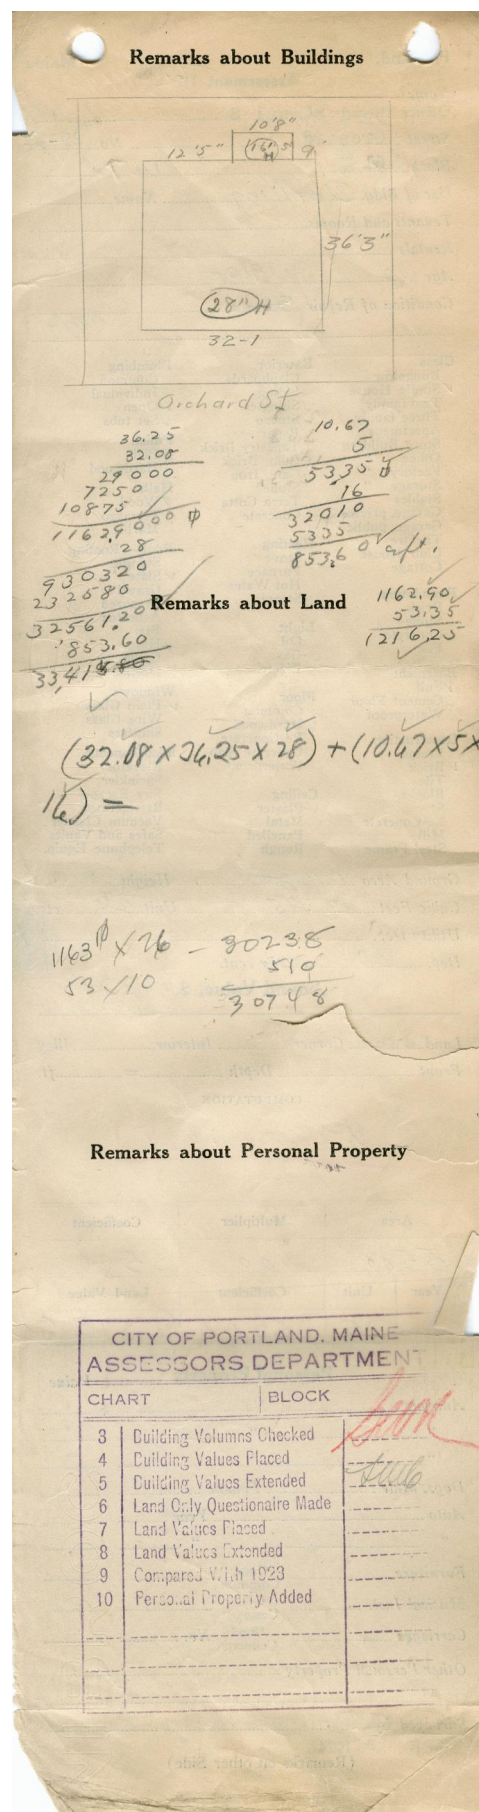 Remarks about Buildings
10'8"
12'5" 16" H 5' 9"
36'3"
28" H
32-1
Orchard St
36.25
32.08
29000
7250
10875
1162.9000
28
930320
232580
32561.20
853.60
33,415.80
10.67
5
53.35
16
32010
5335
853.60 c/ft.
Remarks about Land
1162.90
53.35
1216.25
(32.08 X 36.25 X 28) + (10.67 X 5 X
16) =
1163 X 26 - 30238
53 X 10 510
30748
Remarks about Personal Property
CITY OF PORTLAND, MAINE
ASSESSORS DEPARTMENT
CHART BLOCK
3 Building Volumns Checked
4 Building Values Placed
5 Building Values Extended
6 Land Only Questionaire Made
7 Land Values Placed
8 Land Values Extended
9 Compared With 1923
10 Personal Property Added